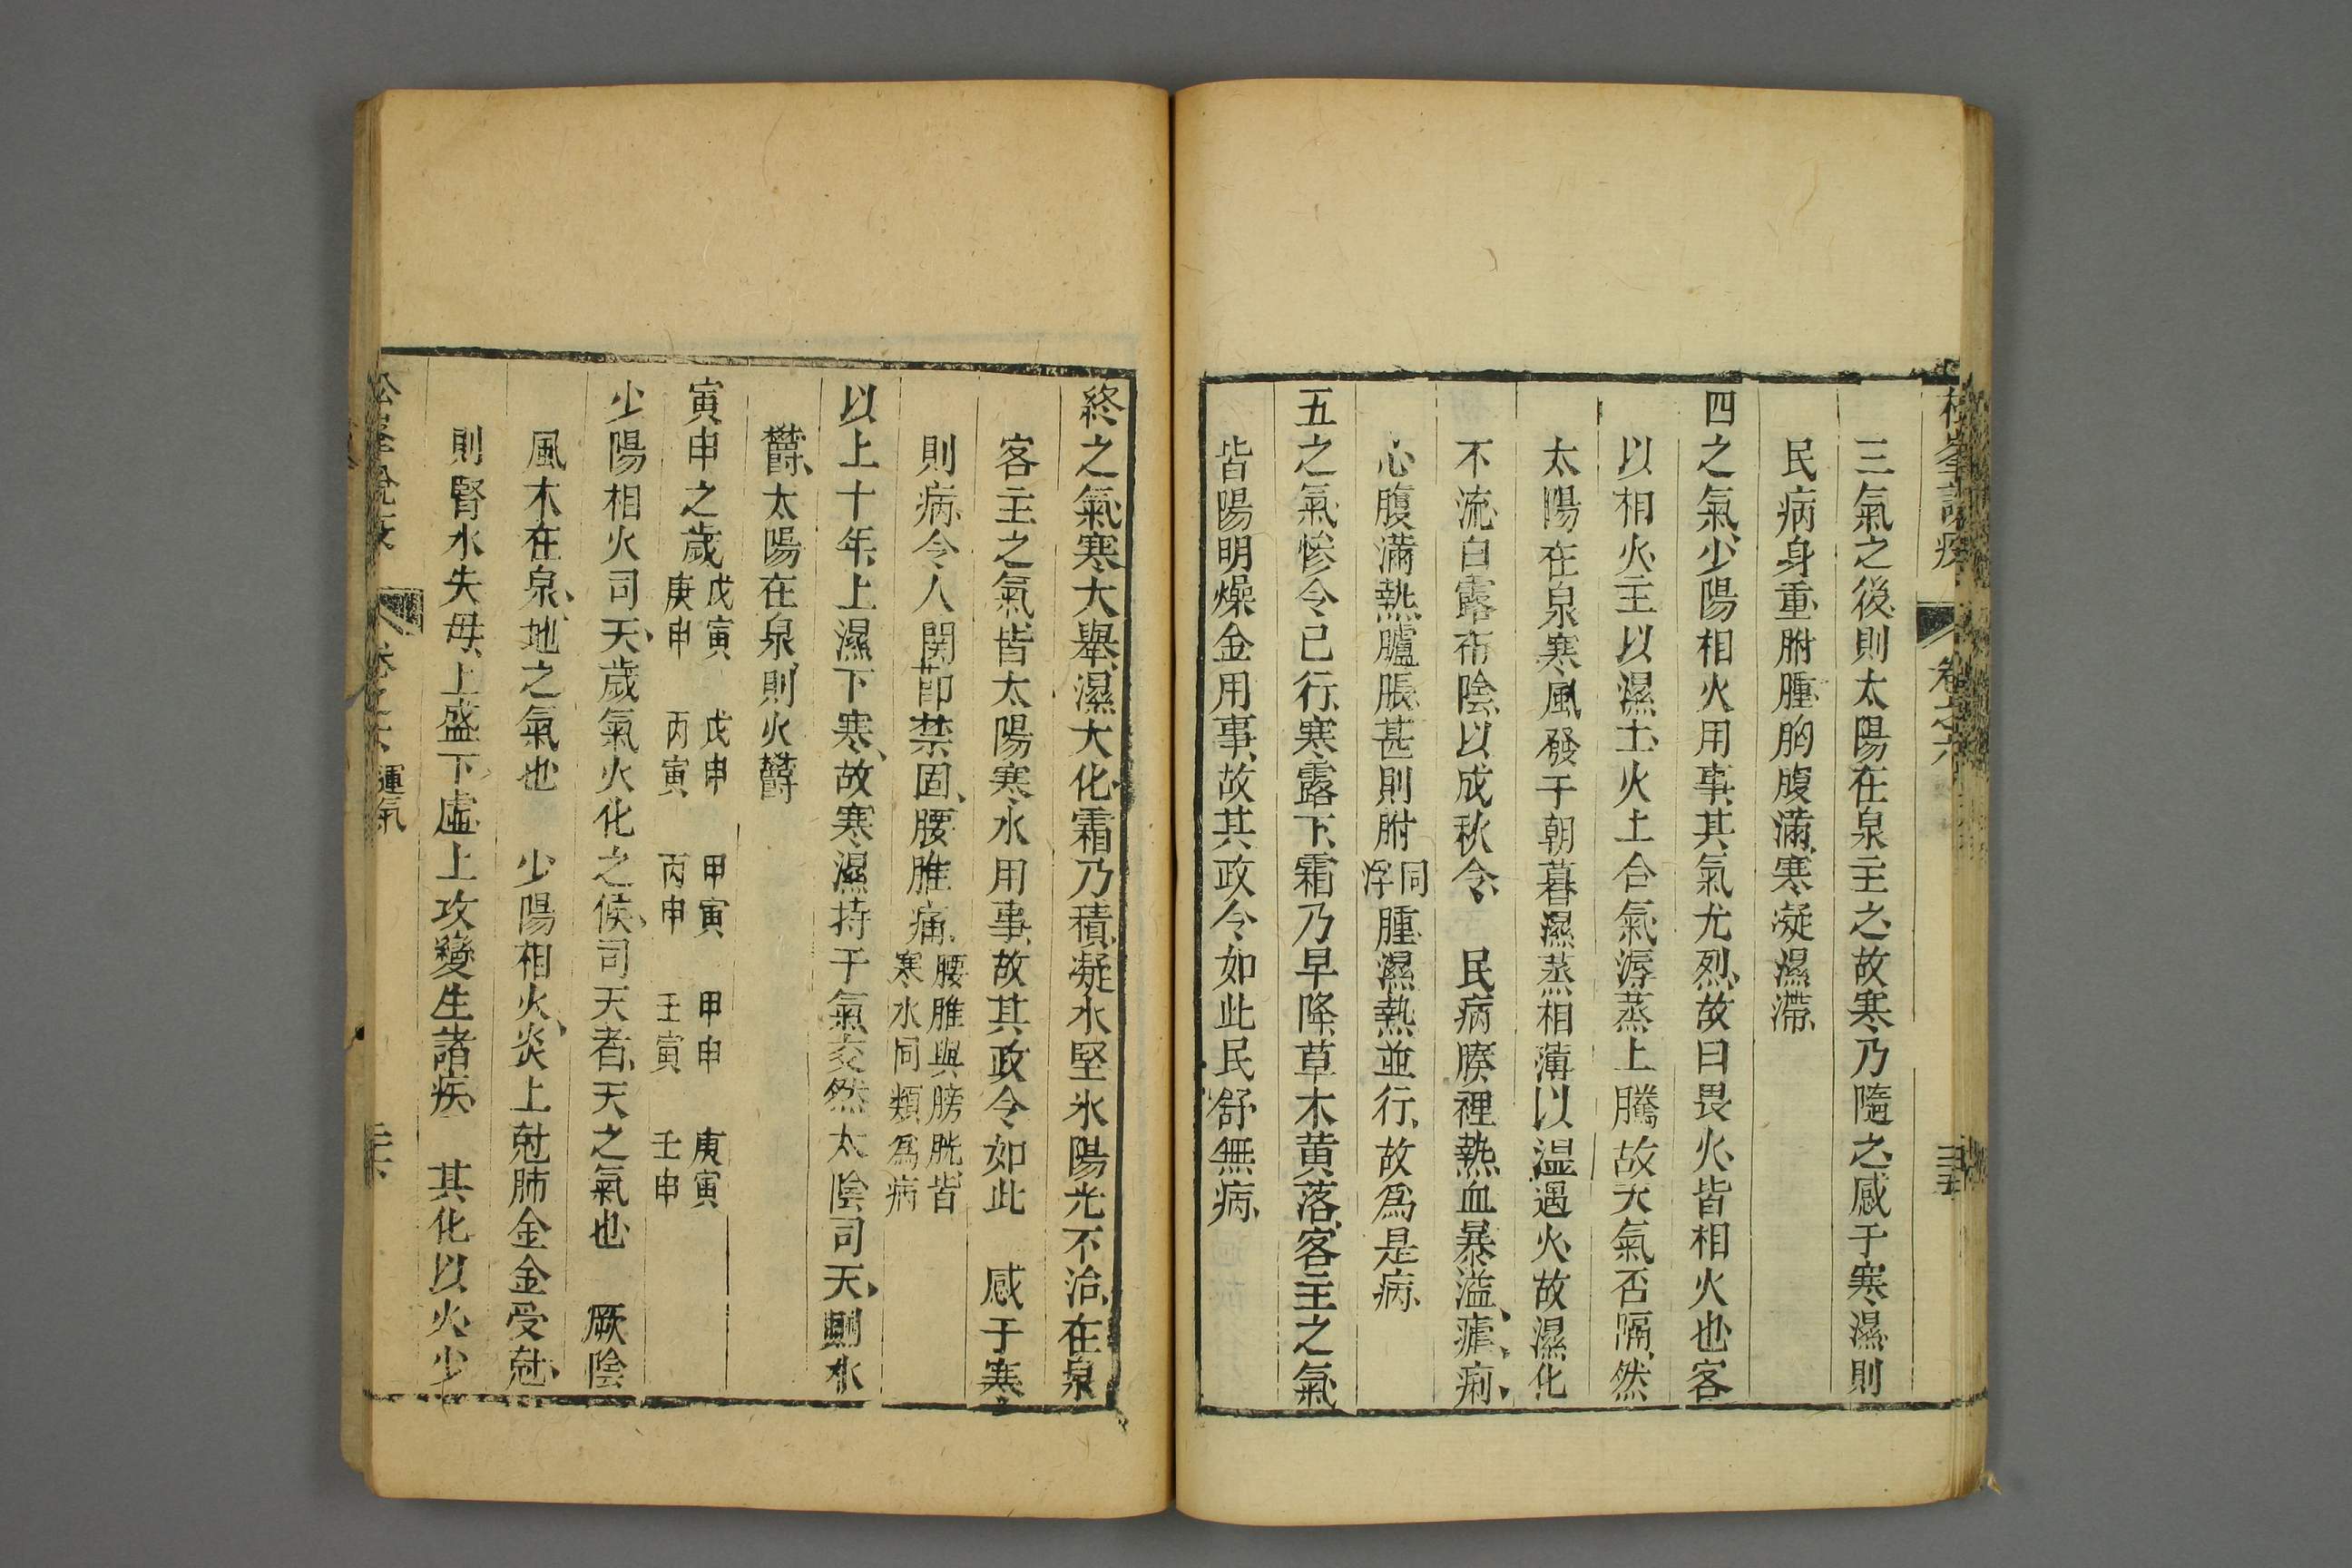 松峯說疫 卷之六 三五
三氣之後、則太陽在泉主之、故寒乃隨之、感于寒濕、則
民病身重、胕腫、胸腹滿、寒凝濕滯、
四之氣、少陽相火用事、其氣尤烈、故曰畏火、皆相火也、客
以相火、主以濕土、火土合氣、溽蒸上騰、故天氣否隔、然
太陽在泉、寒風發于朝暮、濕蒸相薄、以温遇火、故濕化
不流、白露布陰、以成秋令、 民病腠裡熱、血暴溢、瘧、痢、
心腹滿熱、臚脹、甚則胕同浮腫、濕熱並行、故為是病、
五之氣、慘令已行、寒露下、霜乃早降、草木黄落、客主之氣、
皆陽明燥金用事、故其政令如此、民舒無病、
終之氣、寒大舉、濕大化、霜乃積、凝水堅氷、陽光不治、在泉
客主之氣、皆太陽寒水用事、故其政令如此 感于寒、
則病、令人關節禁固、腰脽痛、腰脽與膀胱、皆寒水同類為病
以上十年、上濕下寒、故寒濕持于氣交、然太陰司天、則水
欝、太陽在泉、則火欝
寅申之歲 戊寅 戊申 甲寅 甲申 庚寅 庚申 丙寅 丙申 壬寅 壬申
少陽相火司天、歲氣火化之候、司天者、天之氣也 厥陰
風木在泉、地之氣也 少陽相火、炎上尅肺金、金受尅、
則腎水失母、上盛下虛、上攻變生諸疾、 其化以火、少
松峯說疫 卷之六 運氣 三六